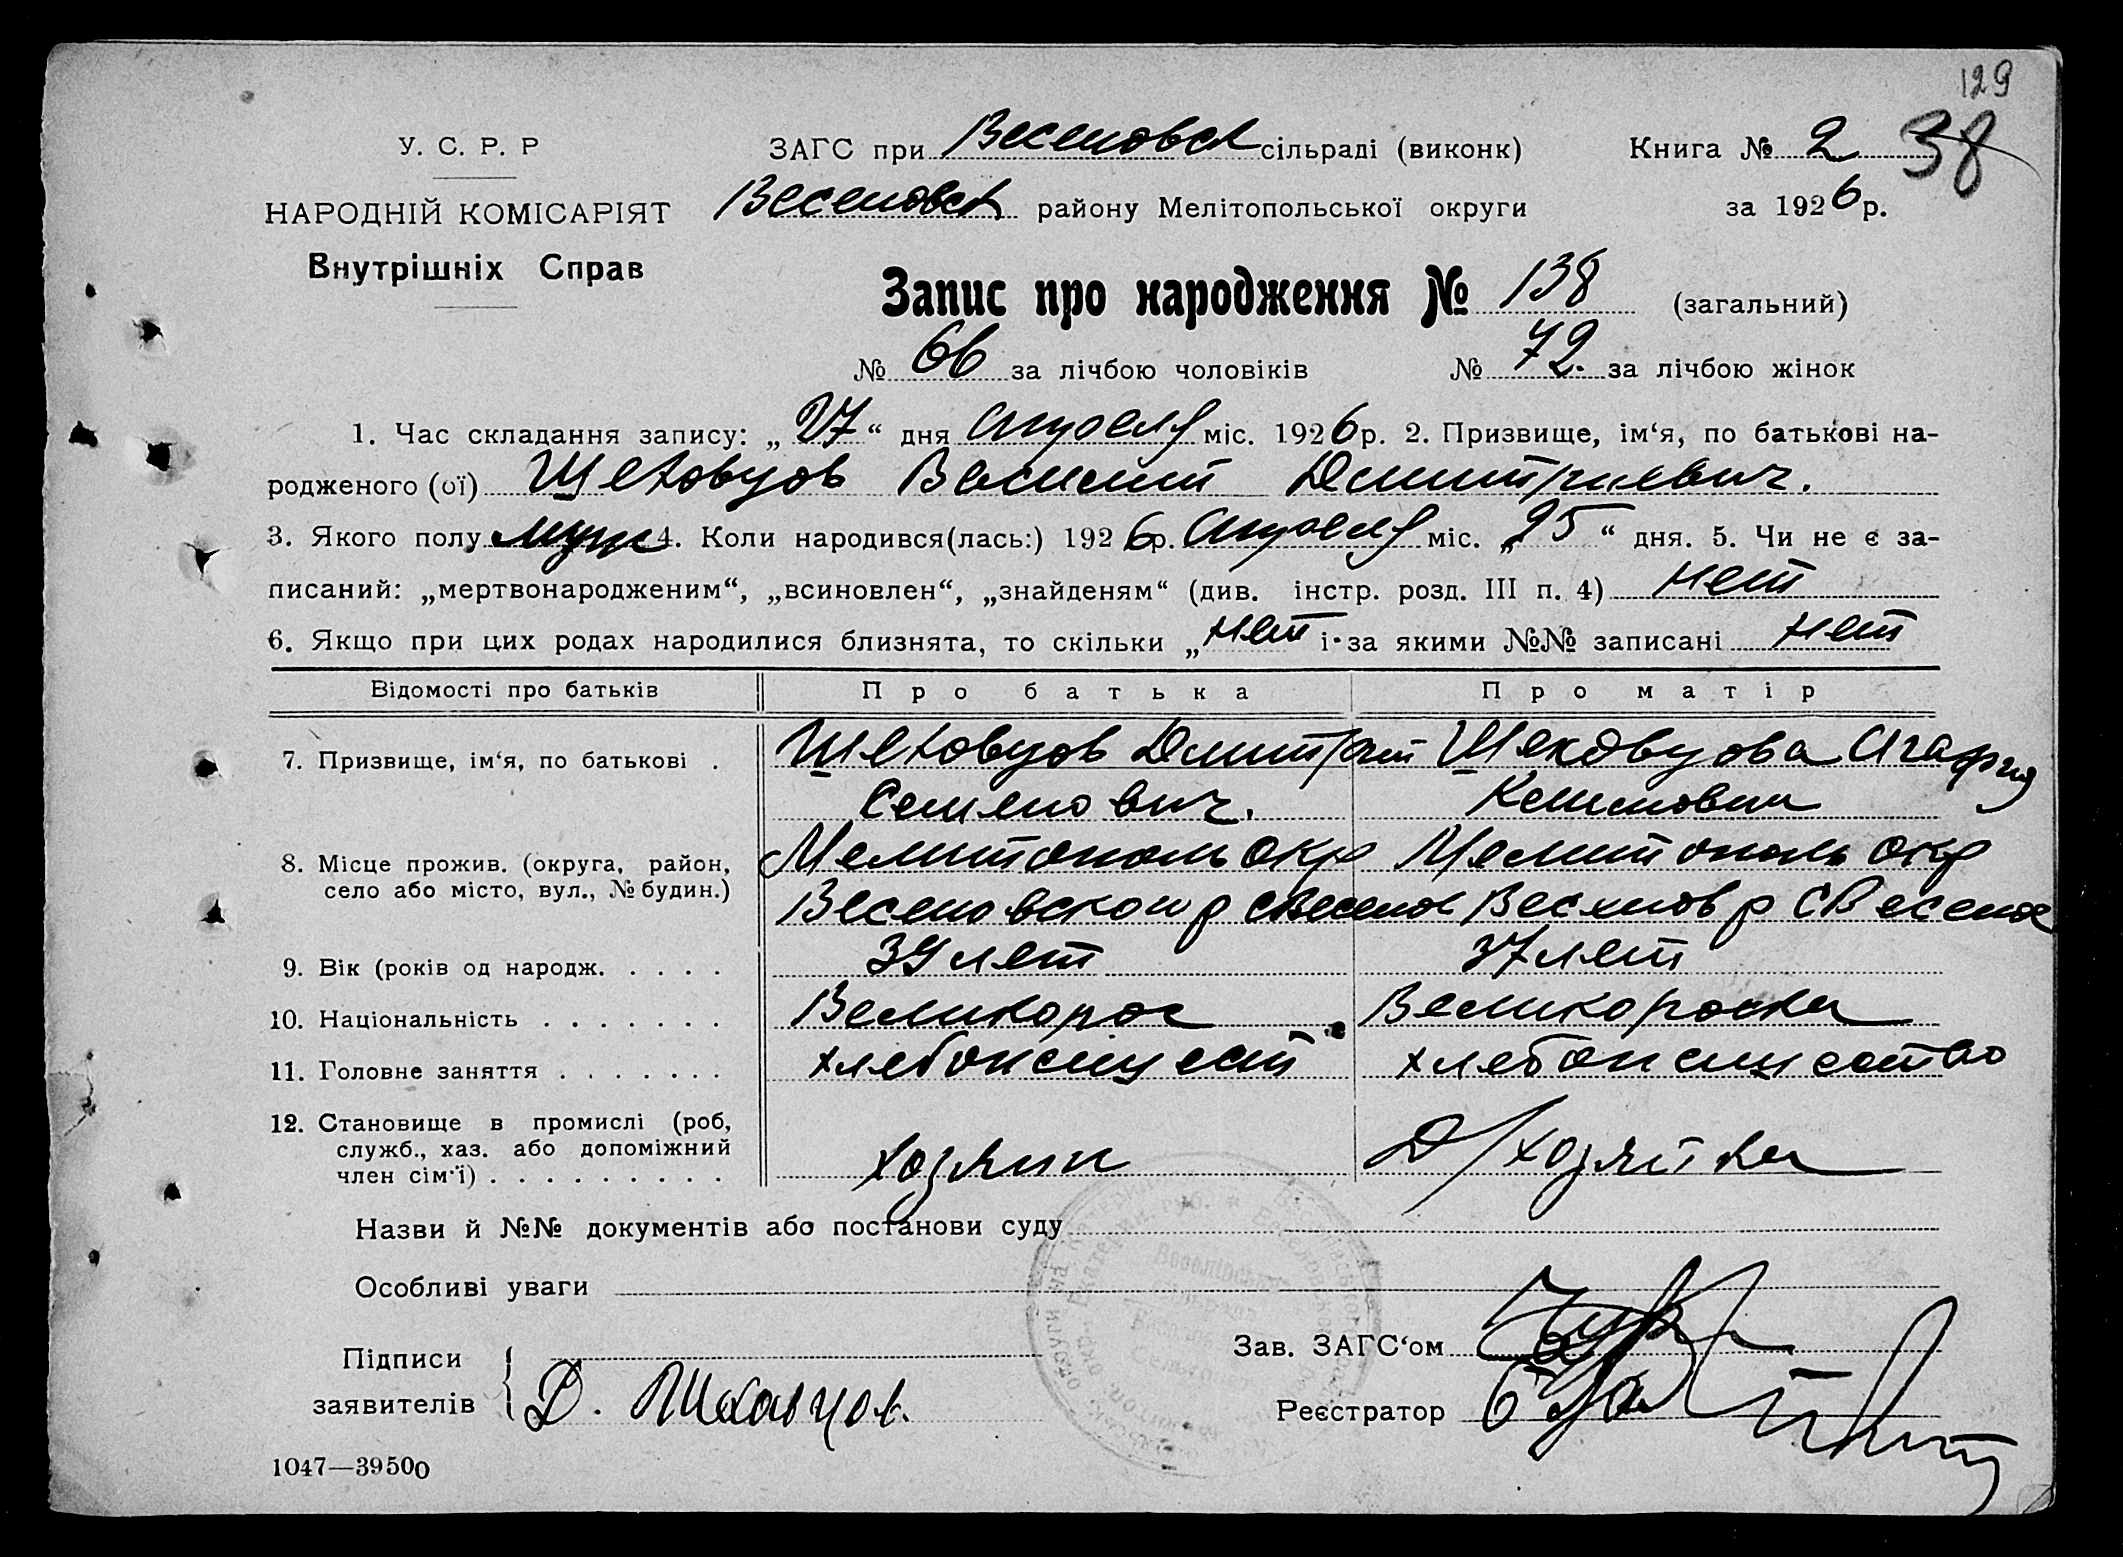 129
У. С. Р. Р ЗАГС при Веселовск сільраді (виконк) Книга № 2 38
НАРОДНІЙ КОМІСАРІЯТ Веселовск району Мелітопольської округи за 1926 р.
Внутрішніх Справ
Запис про народження № 138 (загальний)
№ 66 за лічбою чоловіків № 72. за лічбою жінок
1. Час складання запису: „27“ дня Апреля міс. 1926 р. 2. Призвище, ім‘я, по батькові на-
родженого (ої) Шеховцов Василий Дмитриевич.
3. Якого полу муж 4. Коли народився(лась:) 1926 р. Апреля міс. „25“ дня. 5. Чи не є за-
писаний: „мертвонародженим“, „всиновлен“, „знайденям“ (див. інстр. розд. III п. 4) нет
6. Якщо при цих родах народилися близнята, то скільки „нет і за якими №№ записані нет
Відомості про батьків Про батька Про матір
7. Призвище, ім‘я, по батькові . Шеховцов Дмитрий Шеховцова Агафия
Семенович. Климовна
8. Місце прожив. (округа, район, Мелитополь окр Мелитополь окр
село або місто, вул., № будин.) Веселовского р с Веселое Веселов р с Веселое
9. Вік (років од народж. . . . . 39 лет 37 лет
10. Національність . . . . . . . Великорос Великороска
11. Головне заняття . . . . . . . хлебопашест хлебопашество
12. Становище в промислі (роб,
служб., хаз. або допоміжний хозяин Д/хозяйка
член сім‘ї) . . . . . . . . .
Назви й №№ документів або постанови суду
Особливі уваги
Зав. ЗАГС‘ом
Підписи
заявителів Д. Шеховцов.
Реєстратор
1047—39500